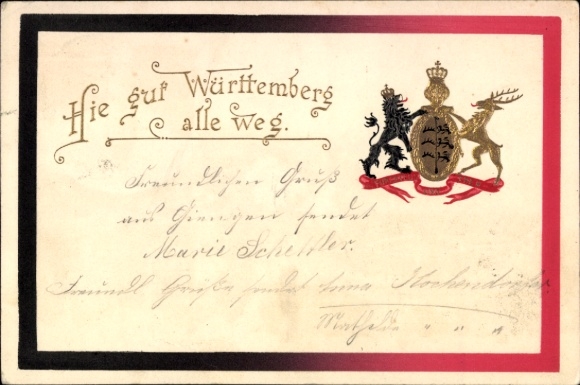 Hie gut Württemberg
alle weg.
Freundlichen Gruß
aus Giengen sendet
Marie Scheffler.
Freundl Grüße sendet
Mathilde " " "